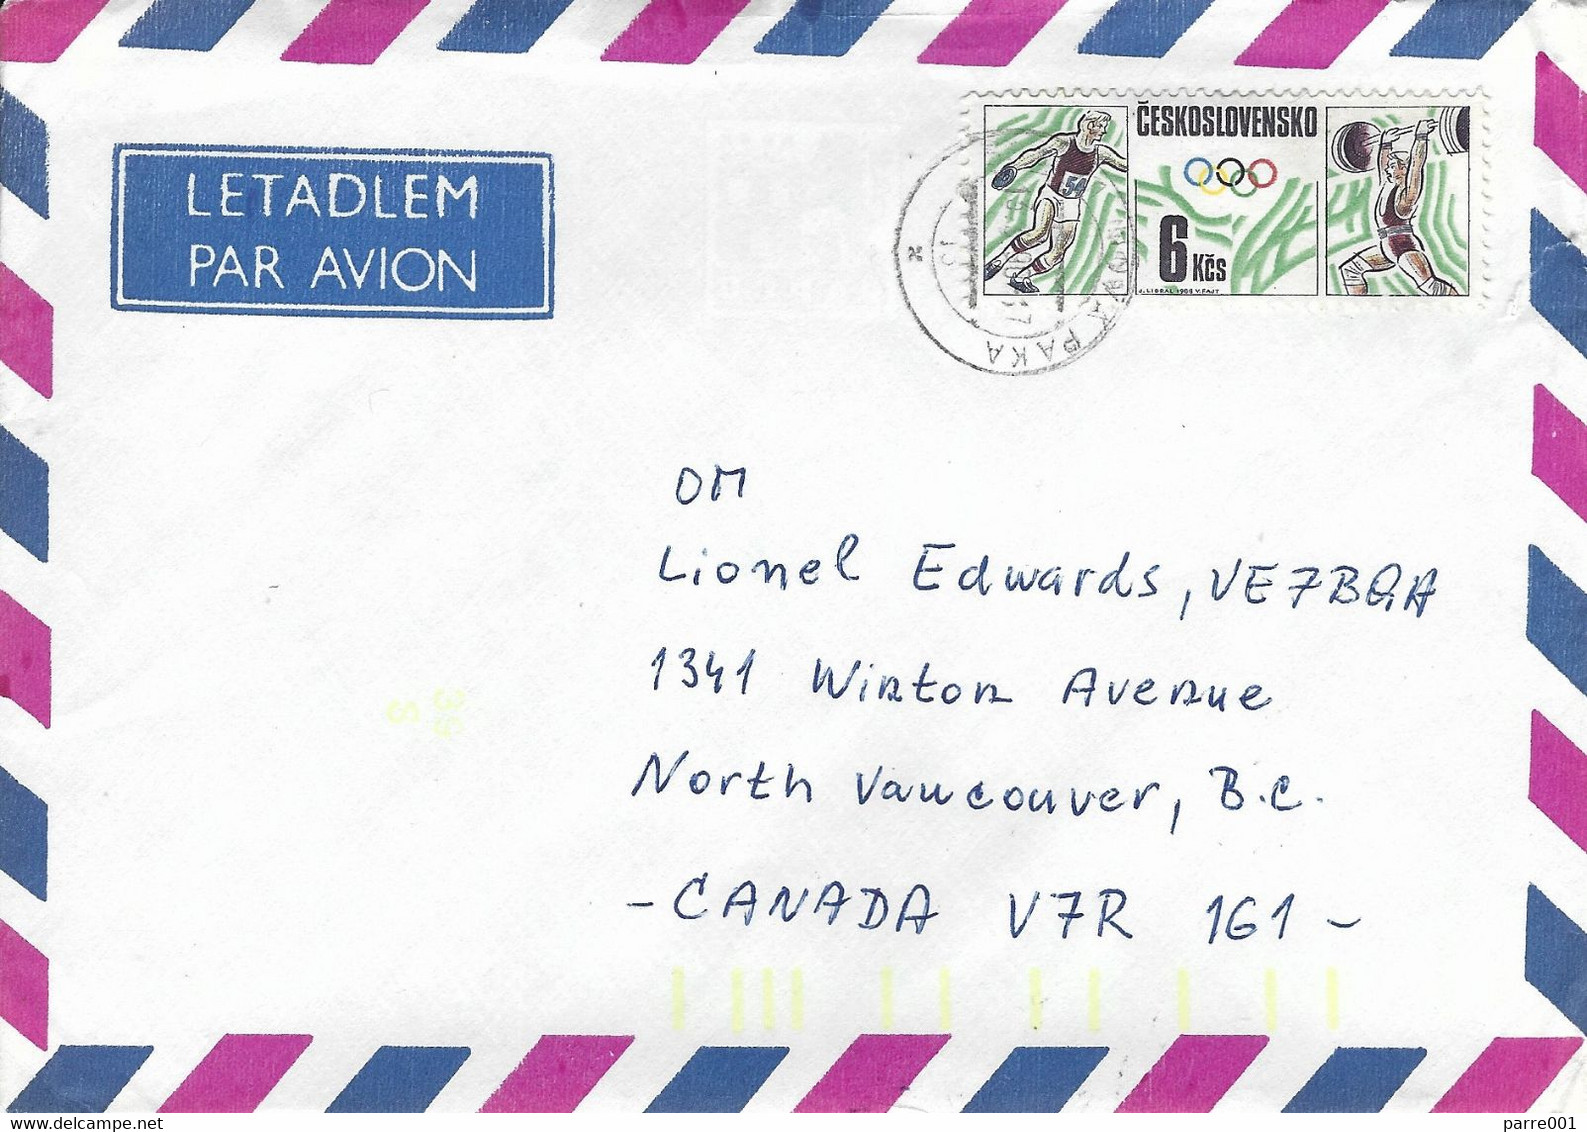 LETADLEM
PAR AVION
ČESKOSLOVENSKO
54
6 Kčs
J. LIESAL 1988 V. FAJT
PAKA
OM
Lionel Edwards, VE7BQA
1341 Winton Avenue
North Vancouver, B.C.
- CANADA V7R 1G1 -
delcampe.net
parre001